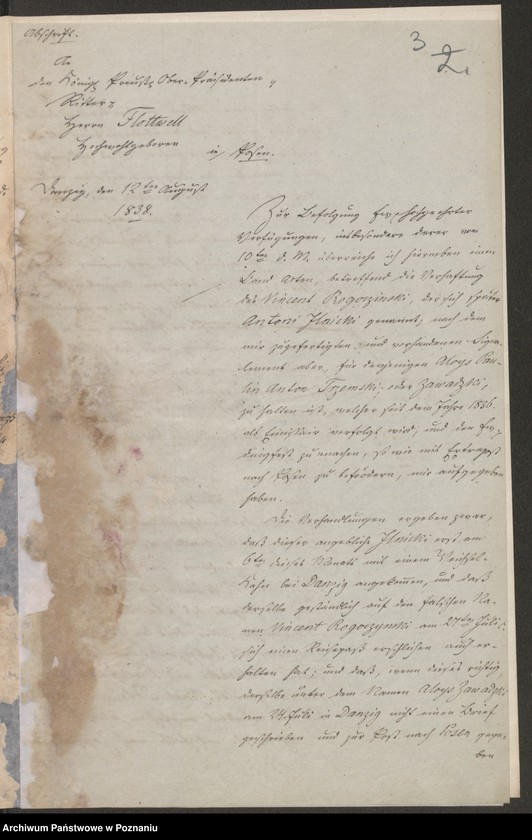 Abschrift.
3
2.
An
den Königl Preuß. Ober-Präsidenten,
Ritter
Herrn Flottwell
Hochwohlgeboren
in Posen.
Danzig, den 12ten August
1838.
Zur Befolgung hochgeehrter
Verfügungen, insbesondere derer vom
10ten d. M. überreiche ich hierneben einen
Band Acten, betreffend die Verhaftung
des Vincent Rogoczinski, der sich später
Antoni Ilnicki genannt, nach dem
mir zugefertigten und vorhandenen Signa-
lement aber, für denjenigen Aloys Pau-
lin Anton Trzemski, oder Zawadzki,
zu halten ist, welcher seit dem Jahre 1836.
als Emissair verfolgt wird, und den
dingfest zu machen, so wie mit Extrapost
nach Posen zu befördern, mir aufgegeben
haben.
Die Verhandlungen ergeben zwar,
daß dieser angebliche Ilnicki erst am
6ten dieses Monats mit einem Weichsel-
Kahn bei Danzig angekommen, und daß
derselbe geständlich auf den falschen Na-
men Vincent Rogoczynski am 27ten Juli
sich einen Reisepaß erschlichen auch er-
halten hat; und daß, wenn dieses richtig,
derselbe unter dem Namen Aloys Zawadzki
am 24 Juli in Danzig nicht einen Brief
geschrieben und zur Post nach Posen gege-
ben
Archiwum Państwowe w Poznaniu